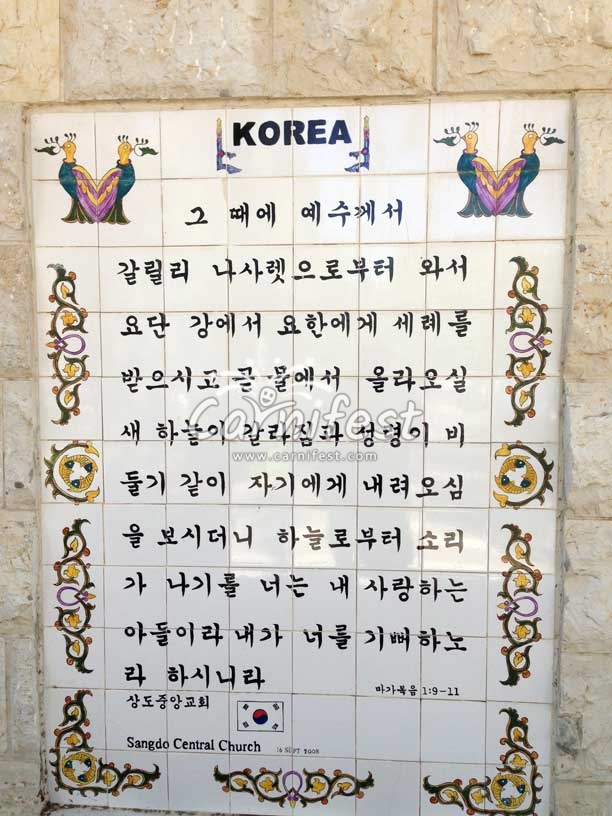 KOREA
그 때에 예수께서
갈릴리 나사렛으로부터 와서
요단 강에서 요한에게 세례를
받으시고 곧 물에서 올라오실
새 하늘이 갈라짐과 성령이 비
둘기 같이 자기에게 내려오심
을 보시더니 하늘로부터 소리
가 나기를 너는 내 사랑하는
아들이라 내가 너를 기뻐하노
라 하시니라
마가복음 1:9-11
상도중앙교회
Sangdo Central Church
16 SEPT 2008
Carnifest
www.carnifest.com